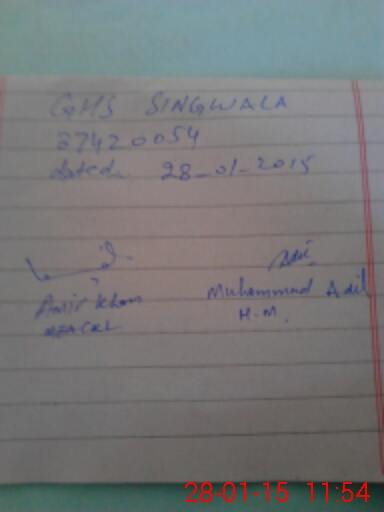 GHS SINGWALA
37420054
dated 28-01-2015
Adil
Amir Khan
Muhammad Adil
H.M.
28-01-15 11:54